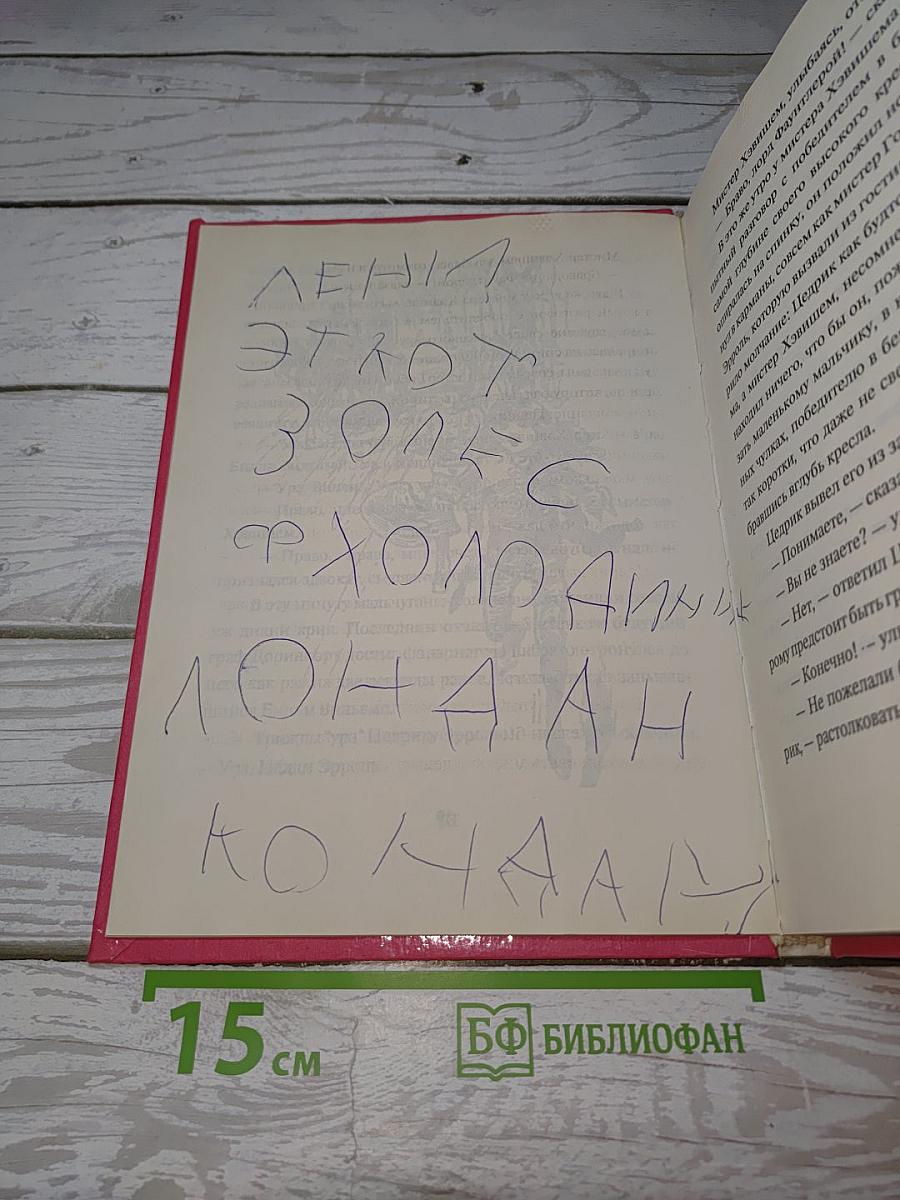 ЛЕНИ
ЭТ КОТ
ЗОЛЕ С
Ф ХОЛОДИНЫ
ЛОНДАН
КОНДАН
Мистер Хэвишем, улыбаясь, от
Браво, лорд Фаунтлерой! — ск
В это же утро у мистера Хэвишема
пытный разговор с победителем в б
самой глубине своего высокого кре
опираясь на спинку, он положил но
нув в карманы, совсем как мистер Го
Эрроль, которую вызвали из гости
рило молчание: Цедрик как будто
ма, а мистер Хэвишем, несомне
находил ничего, что бы он, пож
зать маленькому мальчику, в к
ных чулках, победителю в бе
так коротки, что даже не св
бравшись вглубь кресла.
Цедрик вывел его из за
– Понимаете, – сказа
– Вы не знаете? – у
– Нет, – ответил Ц
рому предстоит быть гр
– Конечно! – улы
– Не пожелали б
рик, – растолковать
15 см
БФ БИБЛИОФАН